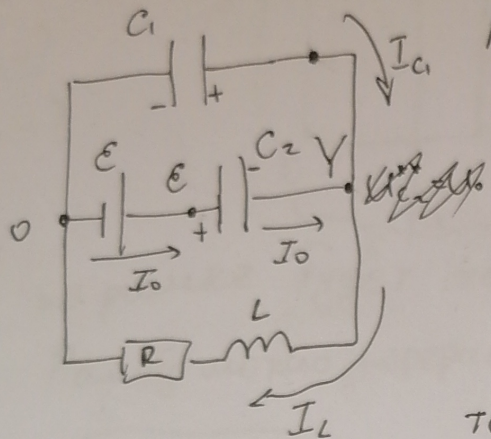 C1
I C1
- +
ε ε C2 - Y
0 +
I0 I0
R L
IL